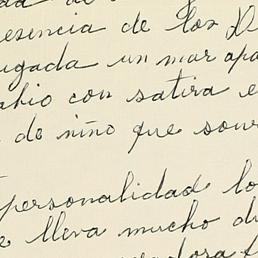 de
esencia de los
ugada un mar apa
abio con satira e
de niño que son
personalidad lo
e lleva mucho d